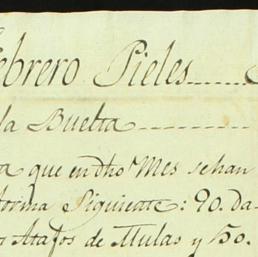 ebrero Pieles
la Buelta
a que en dho Mes se han
forma Siguiente: 90. da-
Atajos de Mulas y 50.